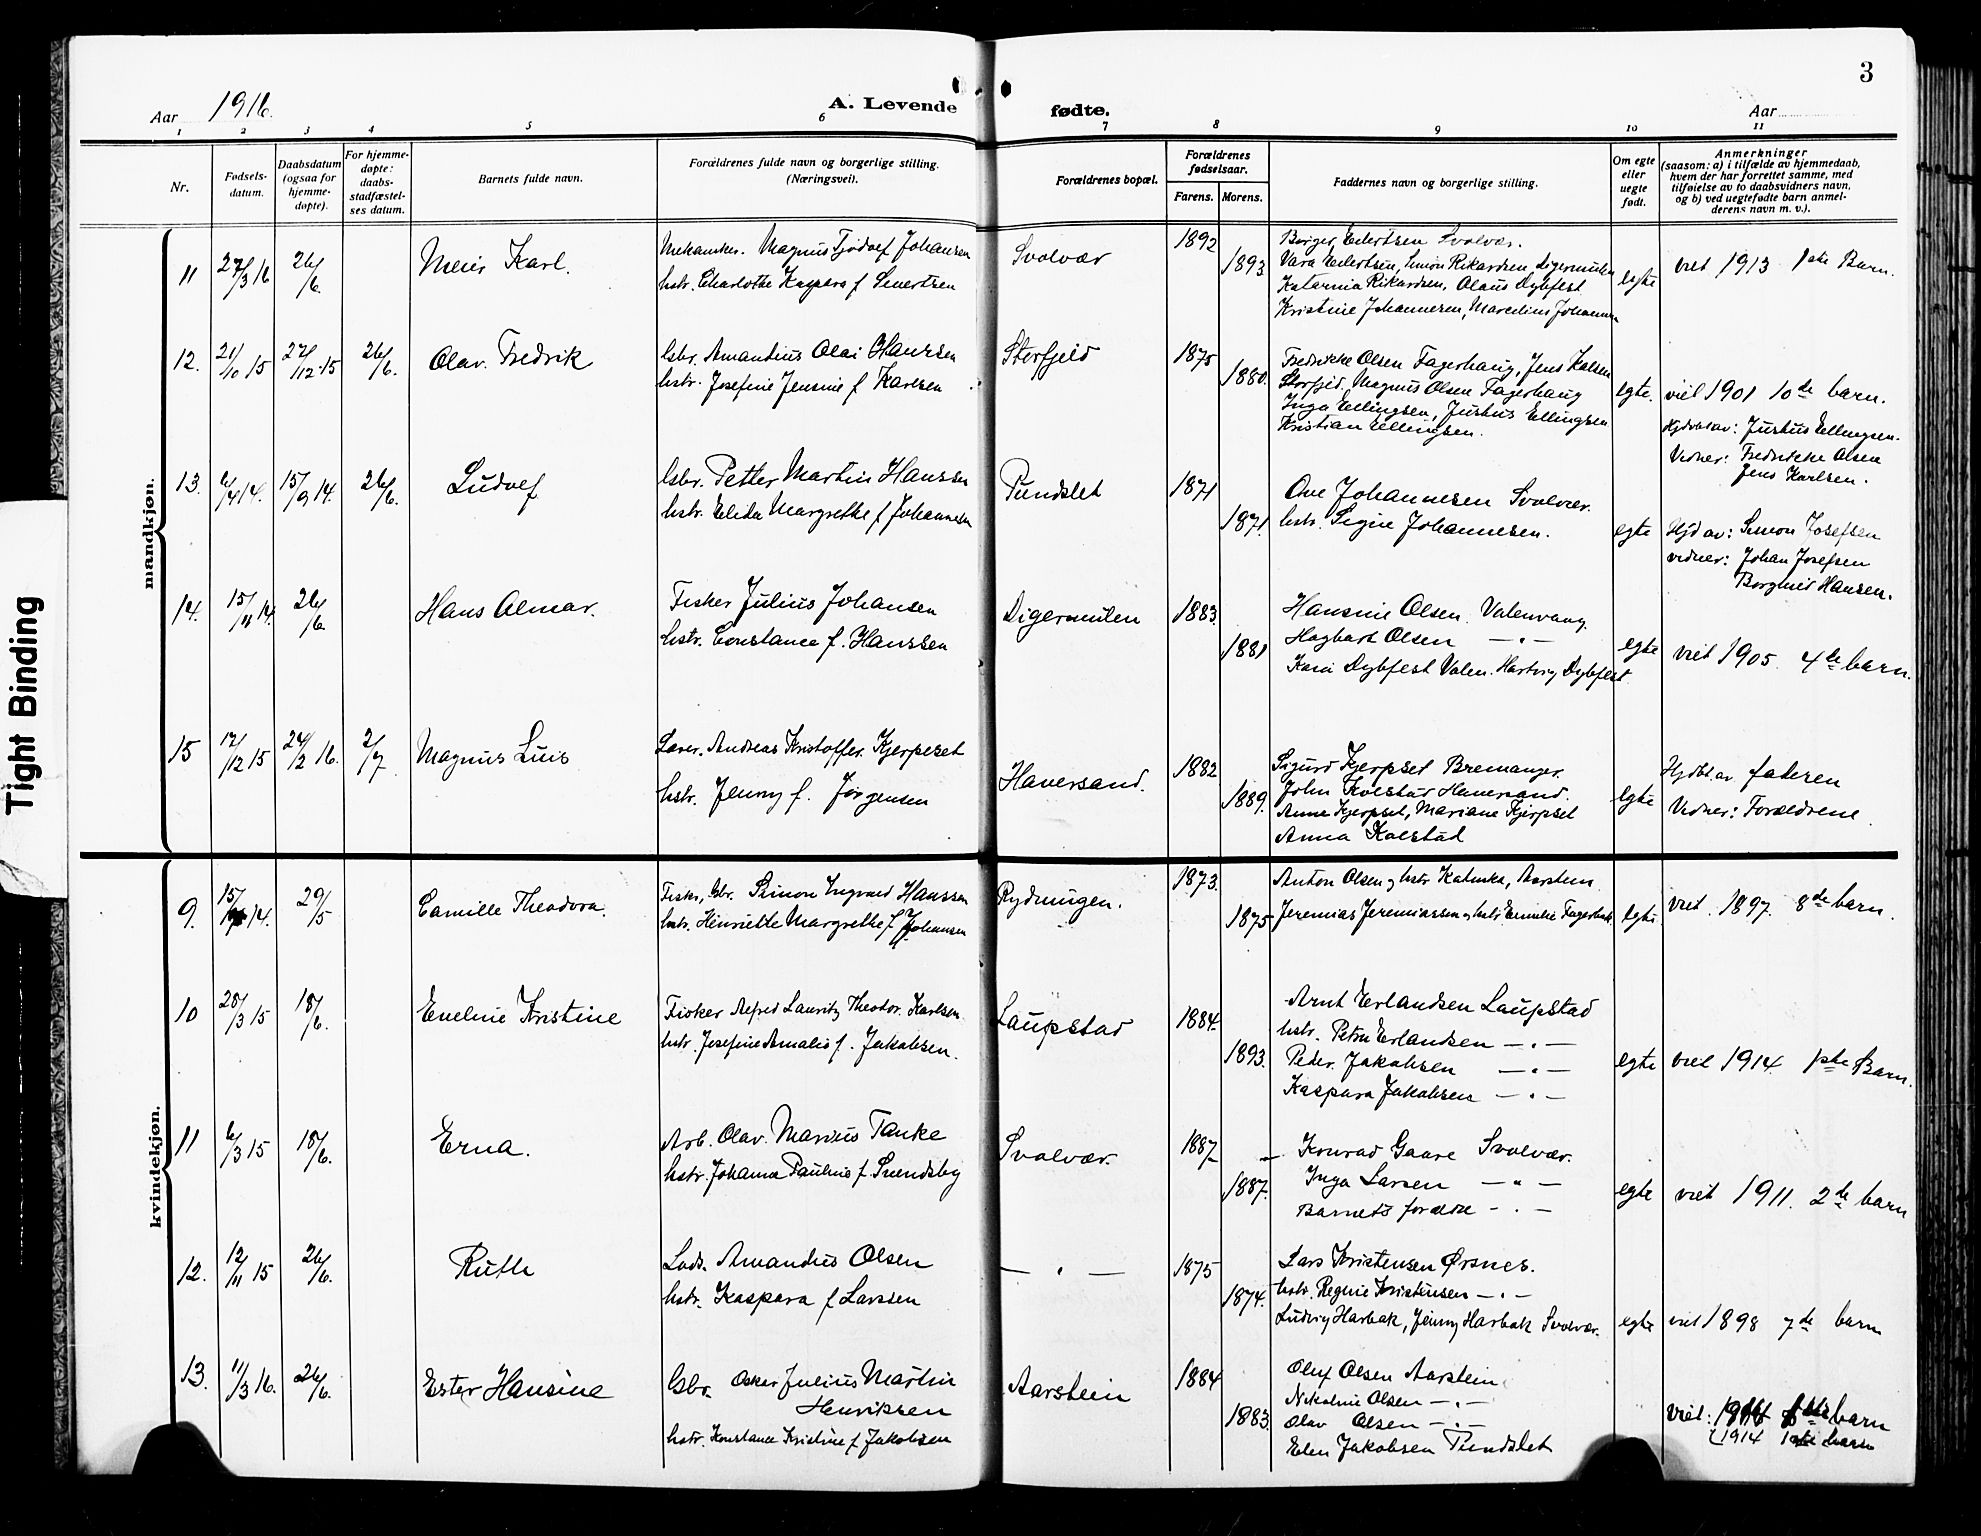 3
Aar 1916.
A. Levende fødte.
Aar
1 2 3 4 5 6 7 8 9 10 11
Nr.
Fødsels-
datum.
Daabsdatum
(ogsaa for
hjemme-
døpte).
For hjemme-
døpte:
daabs-
stadfæstel-
ses datum.
Barnets fulde navn.
Forældrenes fulde navn og borgerlige stilling.
(Næringsvei).
Forældrenes bopæl.
Forældrenes
fødselsaar.
Farens. Morens.
Faddernes navn og borgerlige stilling.
Om egte
eller
uegte
født.
Anmerkninger
(saasom: a) i tilfælde av hjemmedaab,
hvem der har forrettet samme, med
tilføielse av to daabsvidners navn,
og b) ved uegtefødte barn anmel-
derens navn m. v.).
mandkjøn.
11
27/3 16
26/6.
Meier Karl.
Mekaniker. Magnus Tjodolf Johansen
hstr. Charlotte Kaspara f. Sivertsen
Svolvær
1892
1893
Borger Eilertsen Svolvær.
Vara Eilertsen, Simon Rikardsen Digermulen
Katarina Rikardsen, Olaus Dybfest
Kristine Johannesen, Marcelius Johannesen
egte
viet 1913 1ste Barn.
12.
21/10 15
27/12-15
26/6.
Olav. Fredrik
Gbr. Amandius Olai Hanssen
hstr. Josefine Jensine f. Karlsen
Storfjeld
1875
1880.
Fredrikke Olsen Fagerhaug, Jens Kalsen
Storfjeld. Magnus Olsen Fagerhaug
Inga Ellingsen, Justus Ellingsen
Kristian Ellingsen.
egte.
viet 1901 10de barn.
Hjdøbt av: Justus Ellingsen.
Vidner: Fredrikke Olsen
Jens Karlsen.
13.
6/4 14.
15/9 14.
26/6.
Ludolf
Gbr. Petter Martin Hanssen
hstr. Elida Margrethe f. Johannesen
Pundslet
1871
1871
Ove Johannesen Svolvær.
hstr. Signe Johannesen.
egte
Hjd av: Simon Josefsen
vidner: Johan Josefsen
Borghild Hansen.
14.
15/11 14.
26/6.
Hans Almar.
Fisker Julius Johansen
hstr. Constance f. Hanssen
Digermulen
1883.
1881
Hansine Olsen. Valenvaag.
Hagbart Olsen — " —
Karen Dybfest Valen. Hartvig Dybfest
egte
viet 1905. 4de barn.
15
17/12 15
24/2 16.
2/7
Magnus Luis
Lærer. Andreas Kristoffer. Kjerpeset
hstr. Jenny f. Jørgensen
Haversand.
1882
1889.
Sigurd Kjerpset Bremanger.
John Kolstad Haversand.
Anne Kjerpset, Mariane Kjerpset
Anna Kolstad
egte
Hjdbt. av faderen
Vidner: Forældrene
kvindekjøn.
9.
29/5
Camille Theodora.
Fisker, Gbr. Simon Ingvard Hanssen
hstr. Henriette Margrethe f. Johansen
Rydningen.
1873.
1875
Anton Olsen og hstr Katinka, Aarstein
Jeremias Jeremiassen og hstr Emilie Fagerbak
egte.
viet. 1897. 8de barn.
10
28/3 15
18/6.
Eveline Kristine
Fisker Alfred Lauritz Theodor. Karlsen
hstr. Josefine Amalie f. Jakobsen.
Laupstad
1884.
1893.
Arnt Erlandsen Laupstad
hstr. Petra Erlandsen — " —
Peder. Jakobsen — " —
Kaspara Jakobsen — " —
egte
viet 1914 1ste Barn.
11
6/3 15
18/6.
Erna.
Arb. Olav. Marius Tanke
hstr. Johanna Pauline f. Svendsby
Svolvær.
1887
1887.
Konrad Gaare Svolvær.
Inga Larsen — " —
Barnets forældre — " —
egte
viet 1911. 2de barn
12.
12/11 15
26/6.
Ruth
Lods. Amandus Olsen
hstr. Kaspara f. Larssen
— " —
1875
1874.
Lars Kristensen Ørsnes.
hstr. Regine Kristensen — " —
Ludvig Harbak, Jenny Harbak Svolvær.
egte
viet 1898 7de barn
13.
11/3 16.
26/6.
Ester Hansine
Gbr. Oskar Julius Martin
Henriksen
hstr. Konstance Kristine f. Jakobsen
Aarstein
1884
1883.
Oluf Olsen Aarstein
Nikoline Olsen — " —
Olav Olsen — " —
Elen Jakobsen Pundslet
viet: barn
1914 1ste barn
Tight Binding